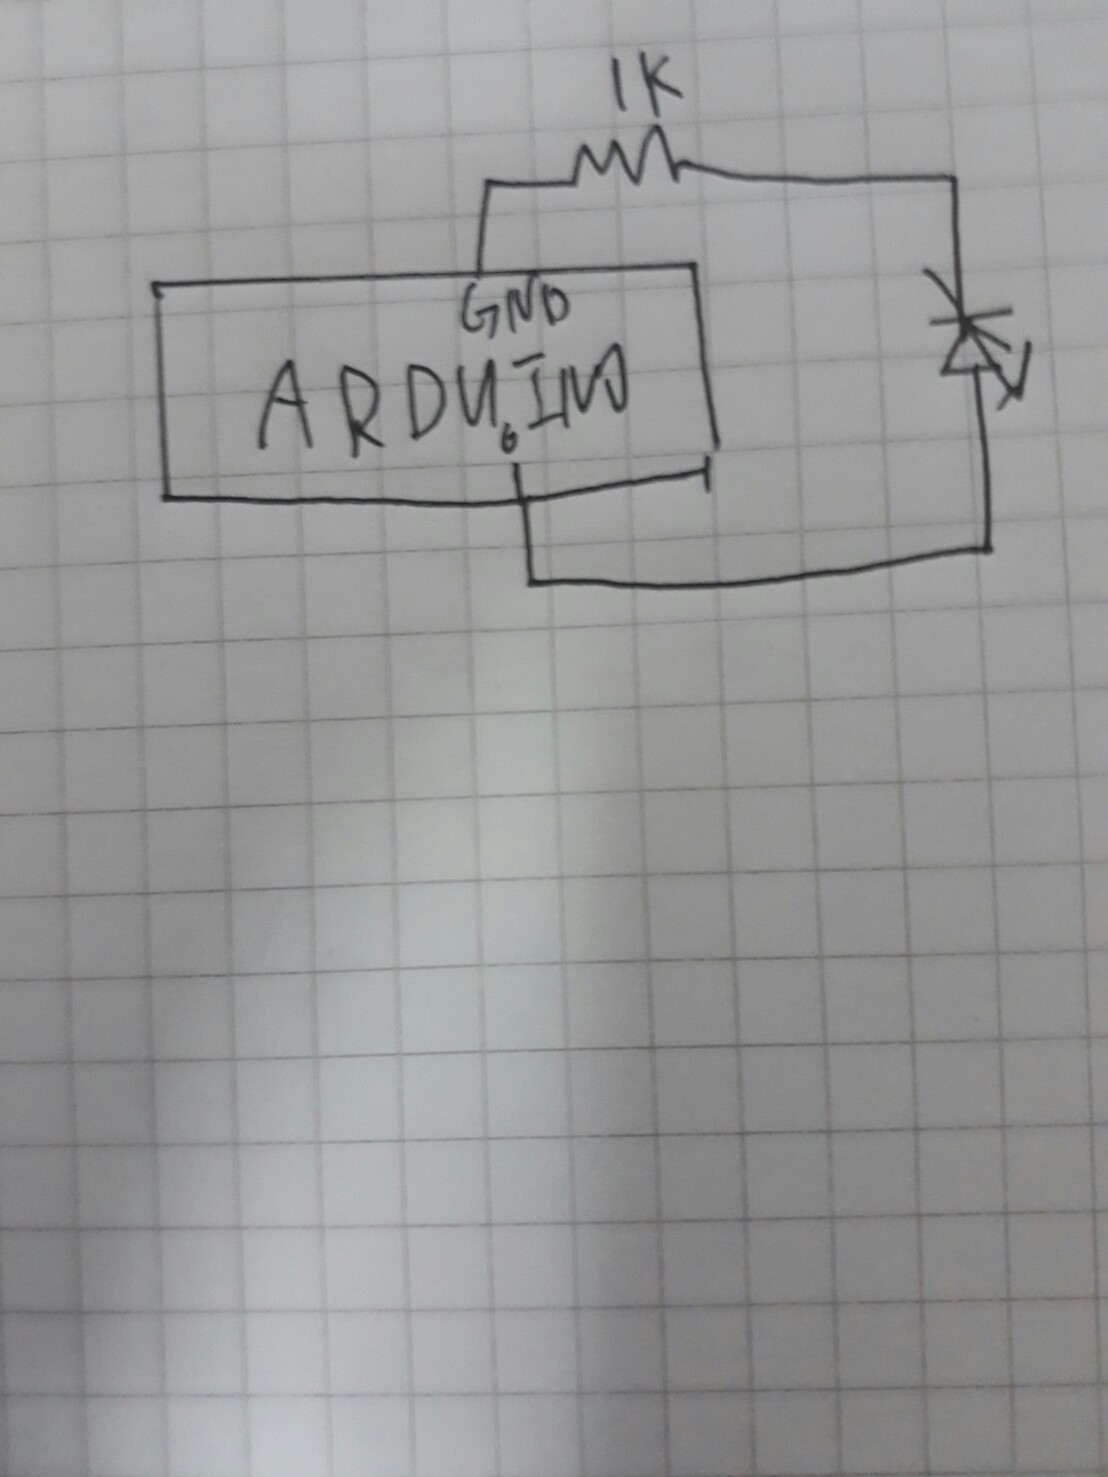 1K
GND
ARDUINO
6